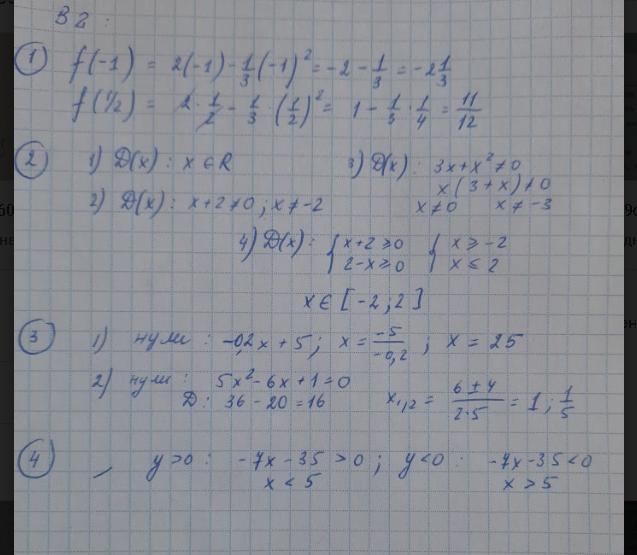 В 2 :
① f(-1) = 2(-1) - 1/3 (-1)² = -2 - 1/3 = -2 1/3
f(1/2) = 2 · 1/2 - 1/3 · (1/2)² = 1 - 1/3 · 1/4 = 11/12
② 1) D(x) : x ∈ R
2) D(x) : x+2 ≠ 0 ; x ≠ -2
3) D(x) : 3x + x² ≠ 0
x(3+x) ≠ 0
x ≠ 0 x ≠ -3
4) D(x) : { x+2 ≥ 0 { x ≥ -2
2-x ≥ 0 x ≤ 2
x ∈ [-2 ; 2]
③ 1) нули : -0,2x + 5 ; x = -5/-0,2 ; x = 25
2) нули : 5x² - 6x + 1 = 0
D : 36 - 20 = 16 x₁,₂ = 6 ± 4 / 2·5 = 1 ; 1/5
④ y > 0 : -7x - 35 > 0 ; y < 0 : -7x - 35 < 0
x < 5 x > 5